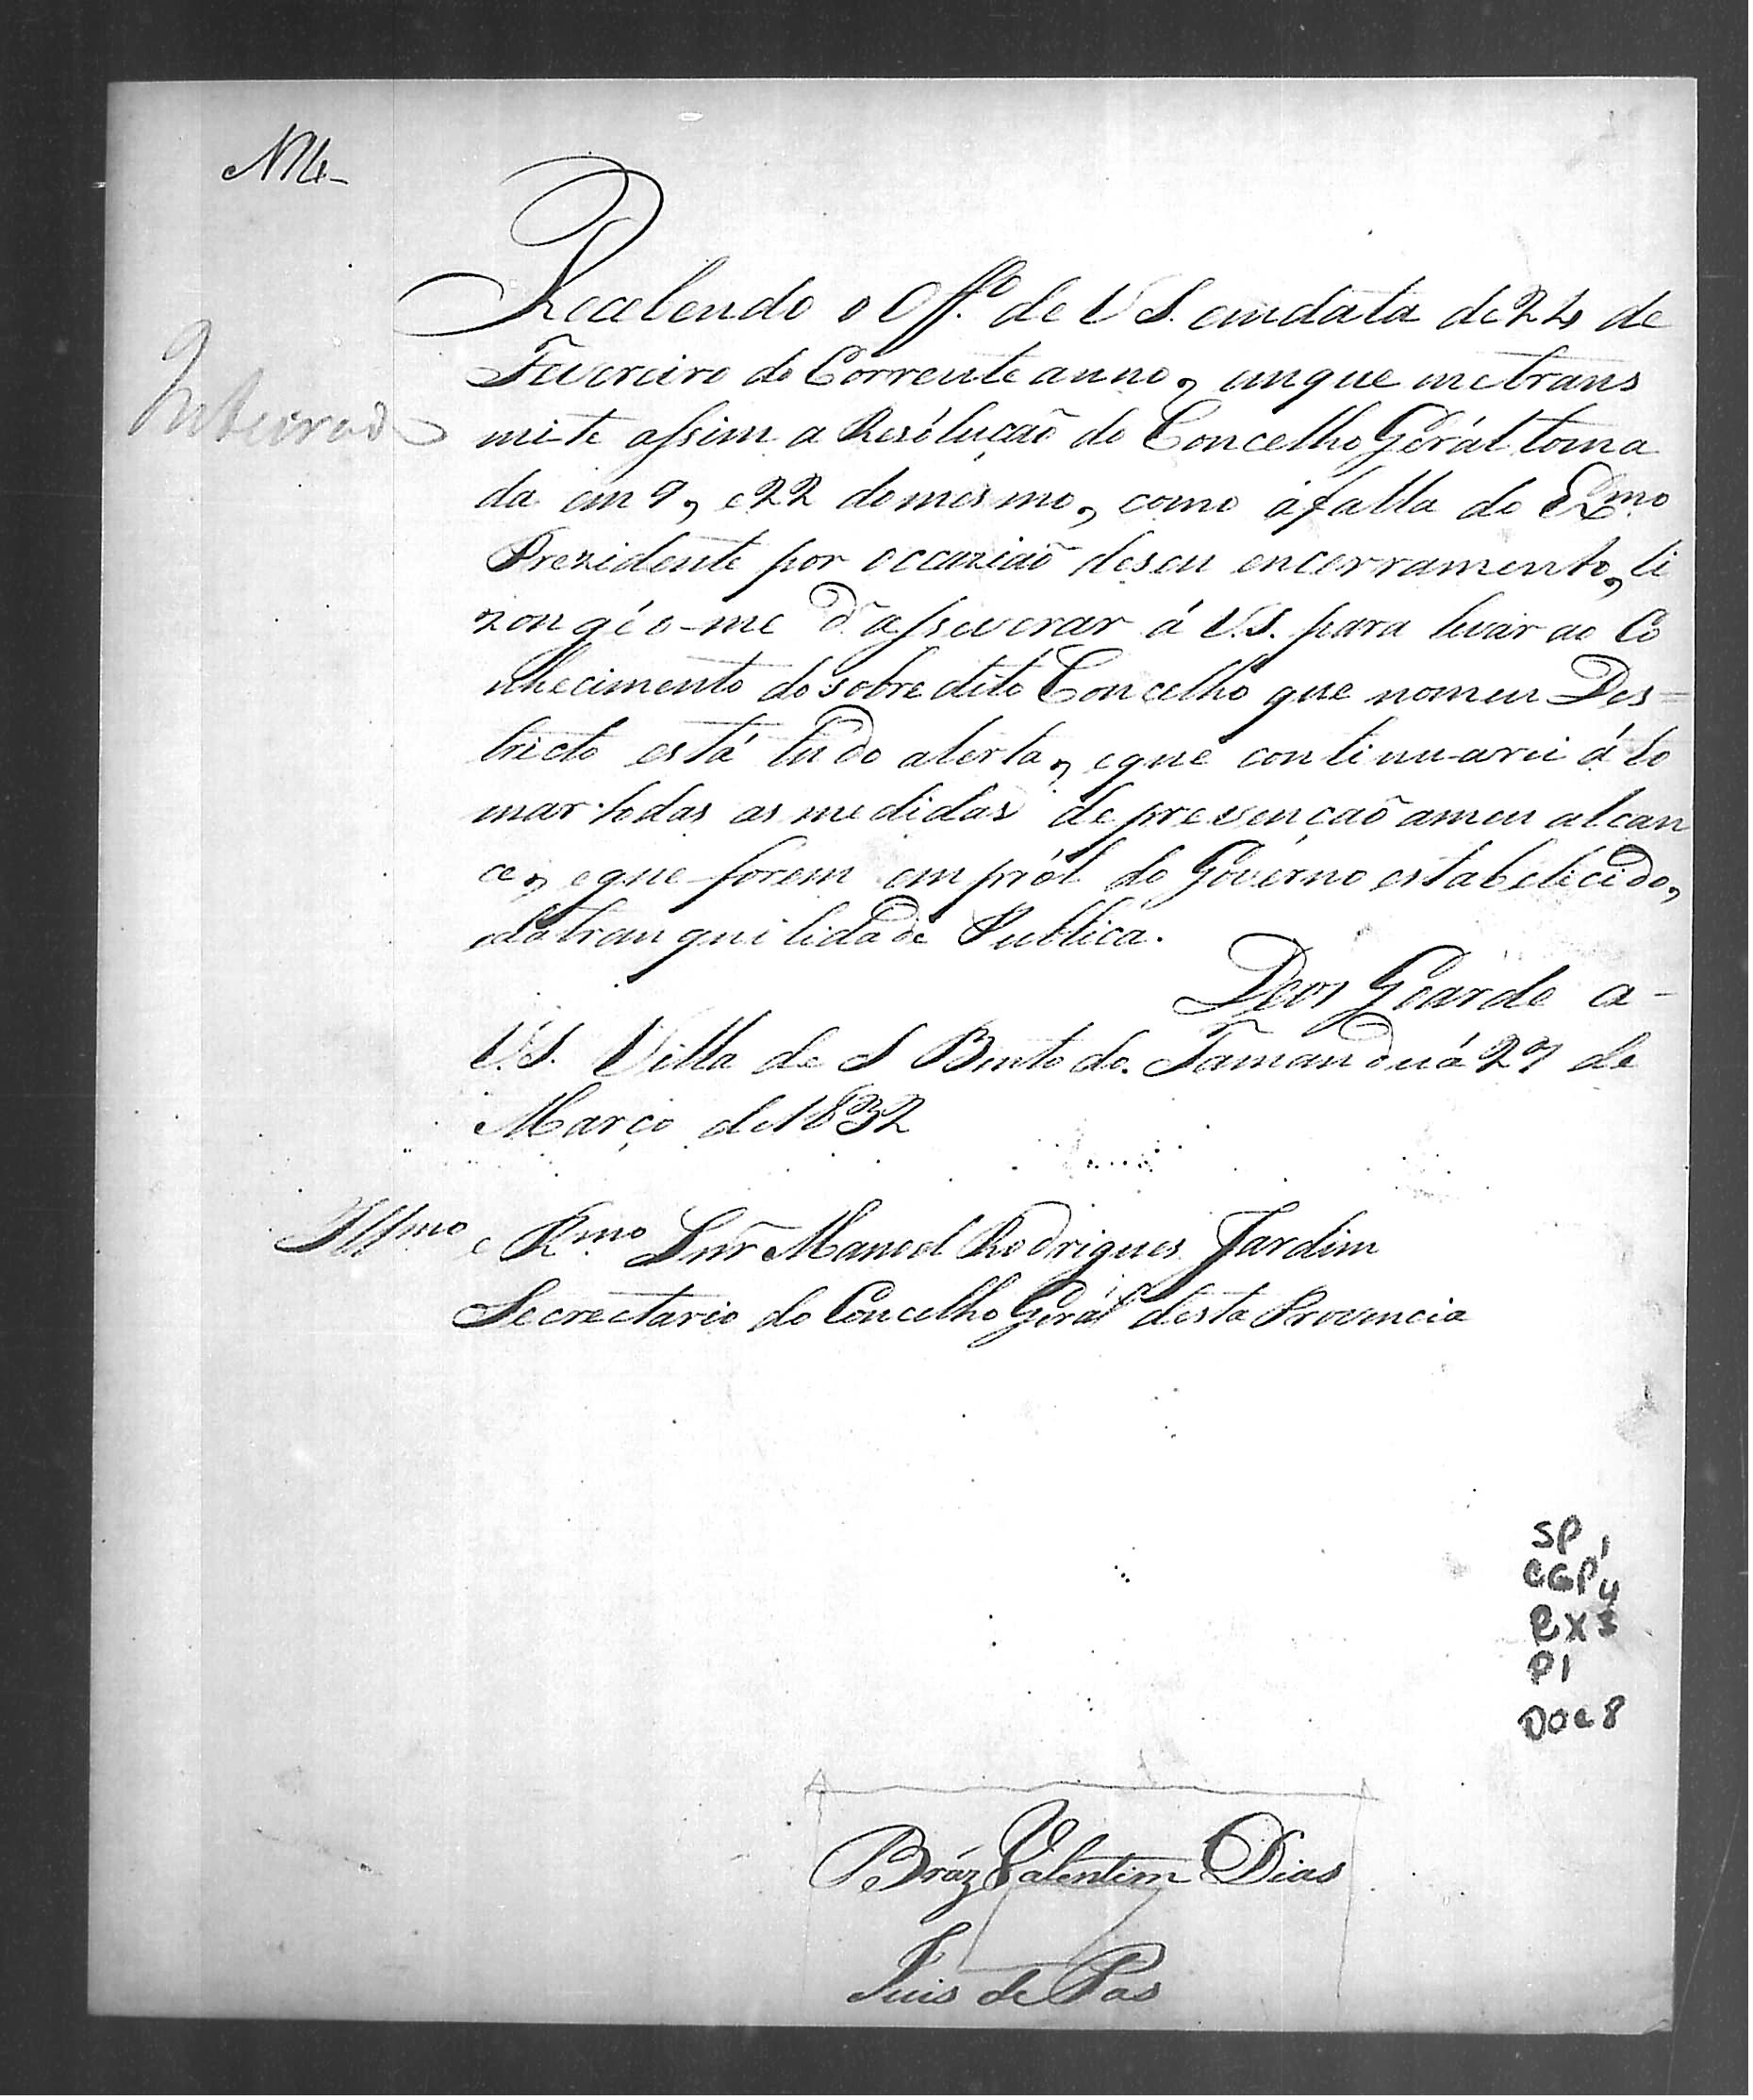 N 4-
Recebendo o Off.º de V S. em data de 24 de
Fevereiro do Corrente anno, em que me trans
mite assim a Resólução do Concelho Gerál toma
da em 9, e 22 do mesmo, como á falla do Exmo
Prezidente por occazião de seu encerramento, li
Inteirado
zongéo-me d'asseverar á V.S. para levar ao Co
nhecimento do sobre dito Concelho que no meu Des=
tricto está tudo alerta, e que continuarei á to
mar todas as medidas de prevenção a meu alcan
ce, e que forem em pról do Governo estabelecido,
e da tranquilidade Publica.
Deos Guarde a-
V.S. Villa de S Bento do Tamanduá 27 de
Março de 1832
Illmo e Rmo Snr Manoel Rodrigues Jardim
Secrectario do Concelho Gerál desta Provencia
SP 1
CGP 4
RX3
P1
DOC 8
Bráz Valentim Dias
Juis de Pas